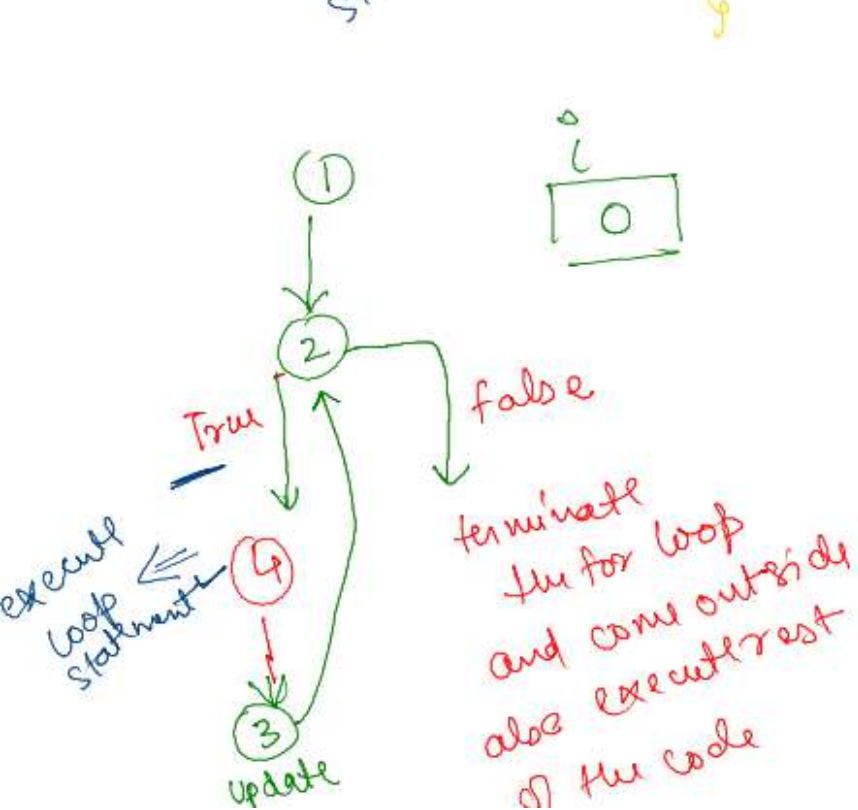 i
0
1
2
True
false
execute
loop
statements
4
3
update
terminate
the for loop
and come outside
also execute rest
of the code